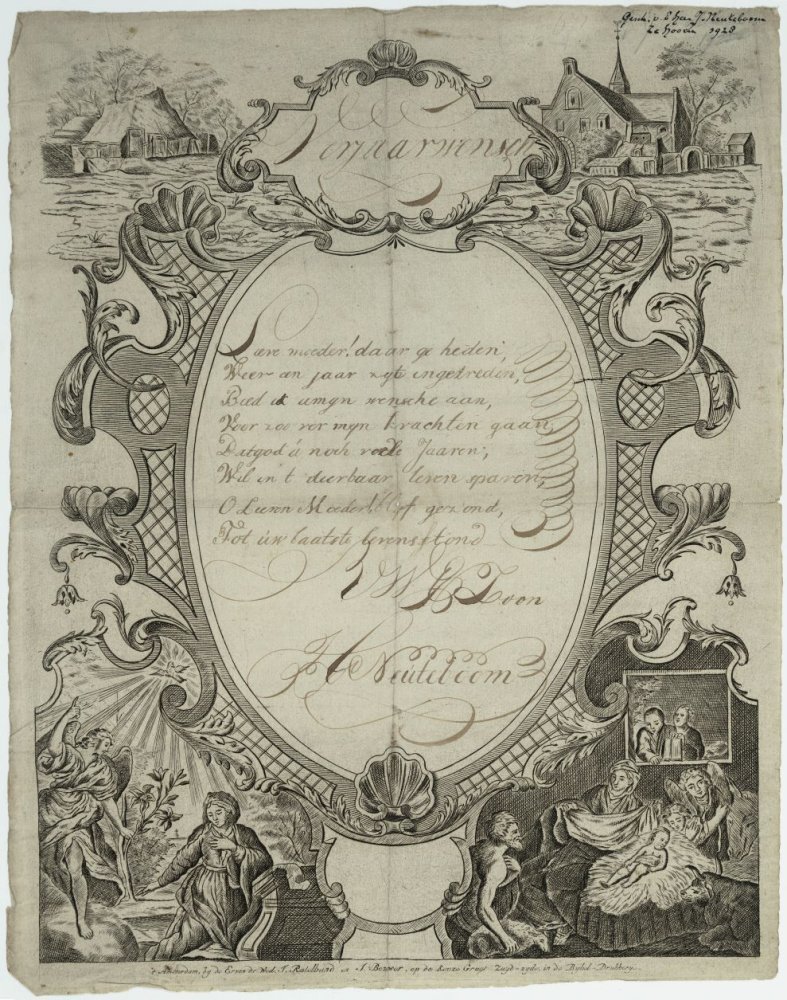 Gesch. v. d. Heer J. Neuteboom
te Hoorn 1928
Verjaarwensch
Lieve moeder! daar ge heden,
Weer een jaar zyt ingetreden,
Bied ik u myn wensche aan,
Voor zoo ver myn krachten gaan,
Dat god ú noch veele Jaaren,
Wil in't dierbaar leven sparen,
O Lieven Moeder blyf gezond,
Tot úw laatste levensstond
UWE Zoon
Neuteboom
t' Amsterdam, by de Erven de Wed. J. Ratelband en J. Bouwer, op de Rooze Gragt Zuyd-zyde, in de Bybel-Drukkery.